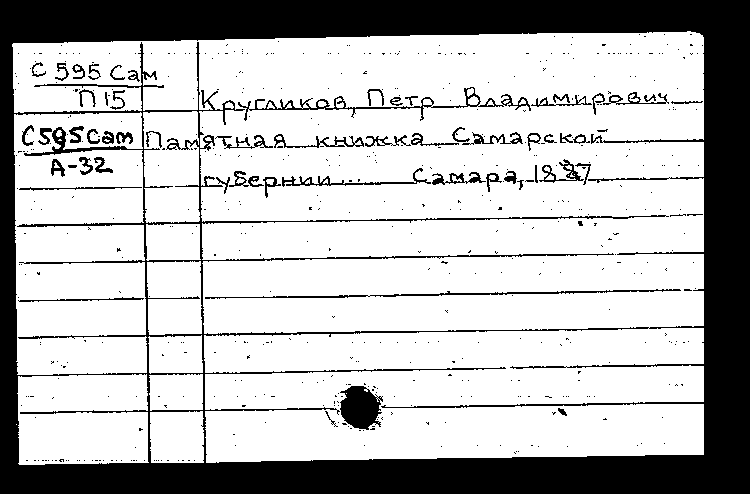 С 595 Сам
П 15
Кругликов, Петр Владимирович
С595Сам
А-32
Памятная книжка Самарской
губернии... Самара,